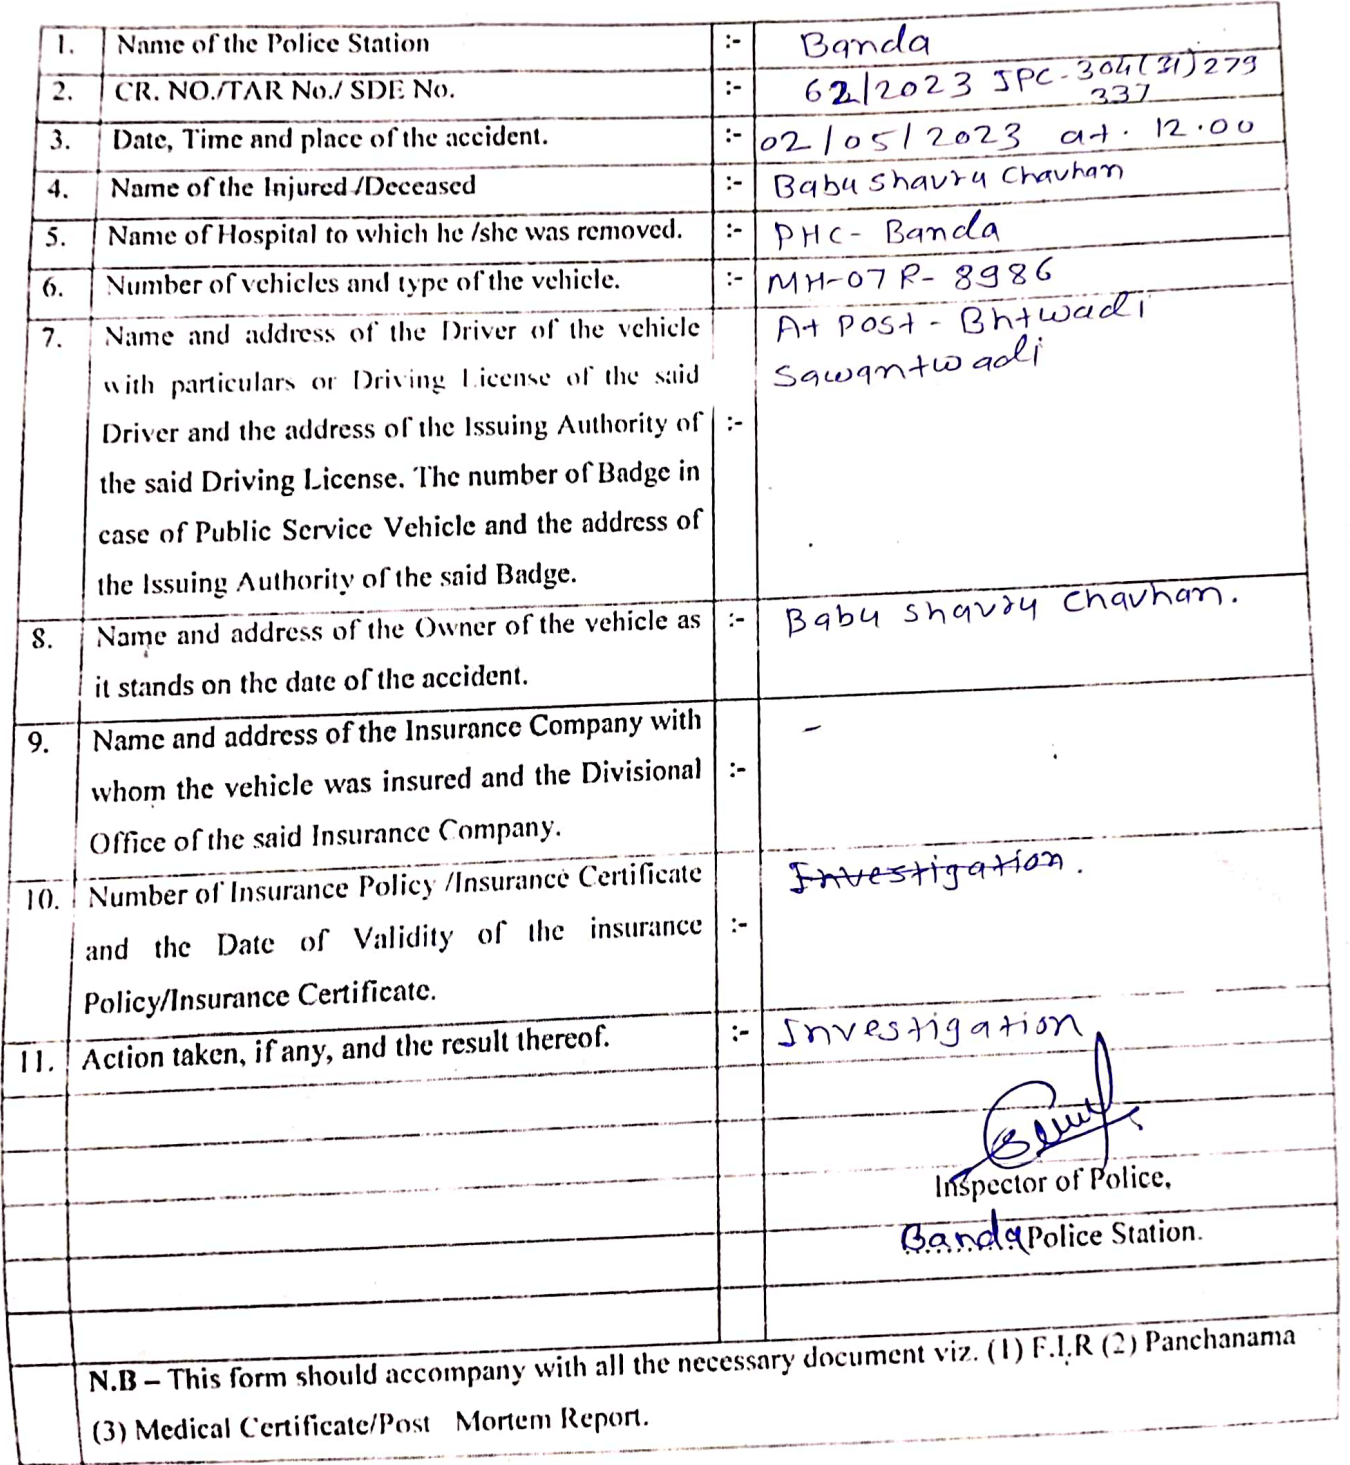 1. Name of the Police Station :- Banda
2. CR. NO./TAR No./ SDE No. :- 62/2023 IPC - 304(31)279
337
3. Date, Time and place of the accident. :- 02/05/2023 at. 12.00
4. Name of the Injured /Deceased :- Babu Shavru Chavhan
5. Name of Hospital to which he /she was removed. :- PHC - Banda
6. Number of vehicles and type of the vehicle. :- MH-07 R- 8986
7. Name and address of the Driver of the vehicle At Post - Bhtwadi
with particulars or Driving License of the said Sawantwadi
Driver and the address of the Issuing Authority of :-
the said Driving License. The number of Badge in
case of Public Service Vehicle and the address of
the Issuing Authority of the said Badge.
8. Name and address of the Owner of the vehicle as :- Babu Shavru Chavhan.
it stands on the date of the accident.
9. Name and address of the Insurance Company with -
whom the vehicle was insured and the Divisional :-
Office of the said Insurance Company.
10. Number of Insurance Policy /Insurance Certificate Investigation.
and the Date of Validity of the insurance :-
Policy/Insurance Certificate.
11. Action taken, if any, and the result thereof. :- Investigation
Inspector of Police,
Banda Police Station.
N.B – This form should accompany with all the necessary document viz. (1) F.I.R (2) Panchanama
(3) Medical Certificate/Post Mortem Report.